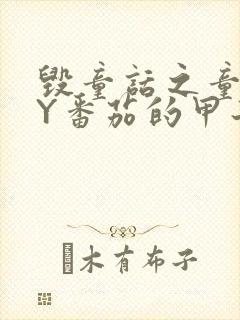 毁童话之童
Y番茄的甲
木有布子